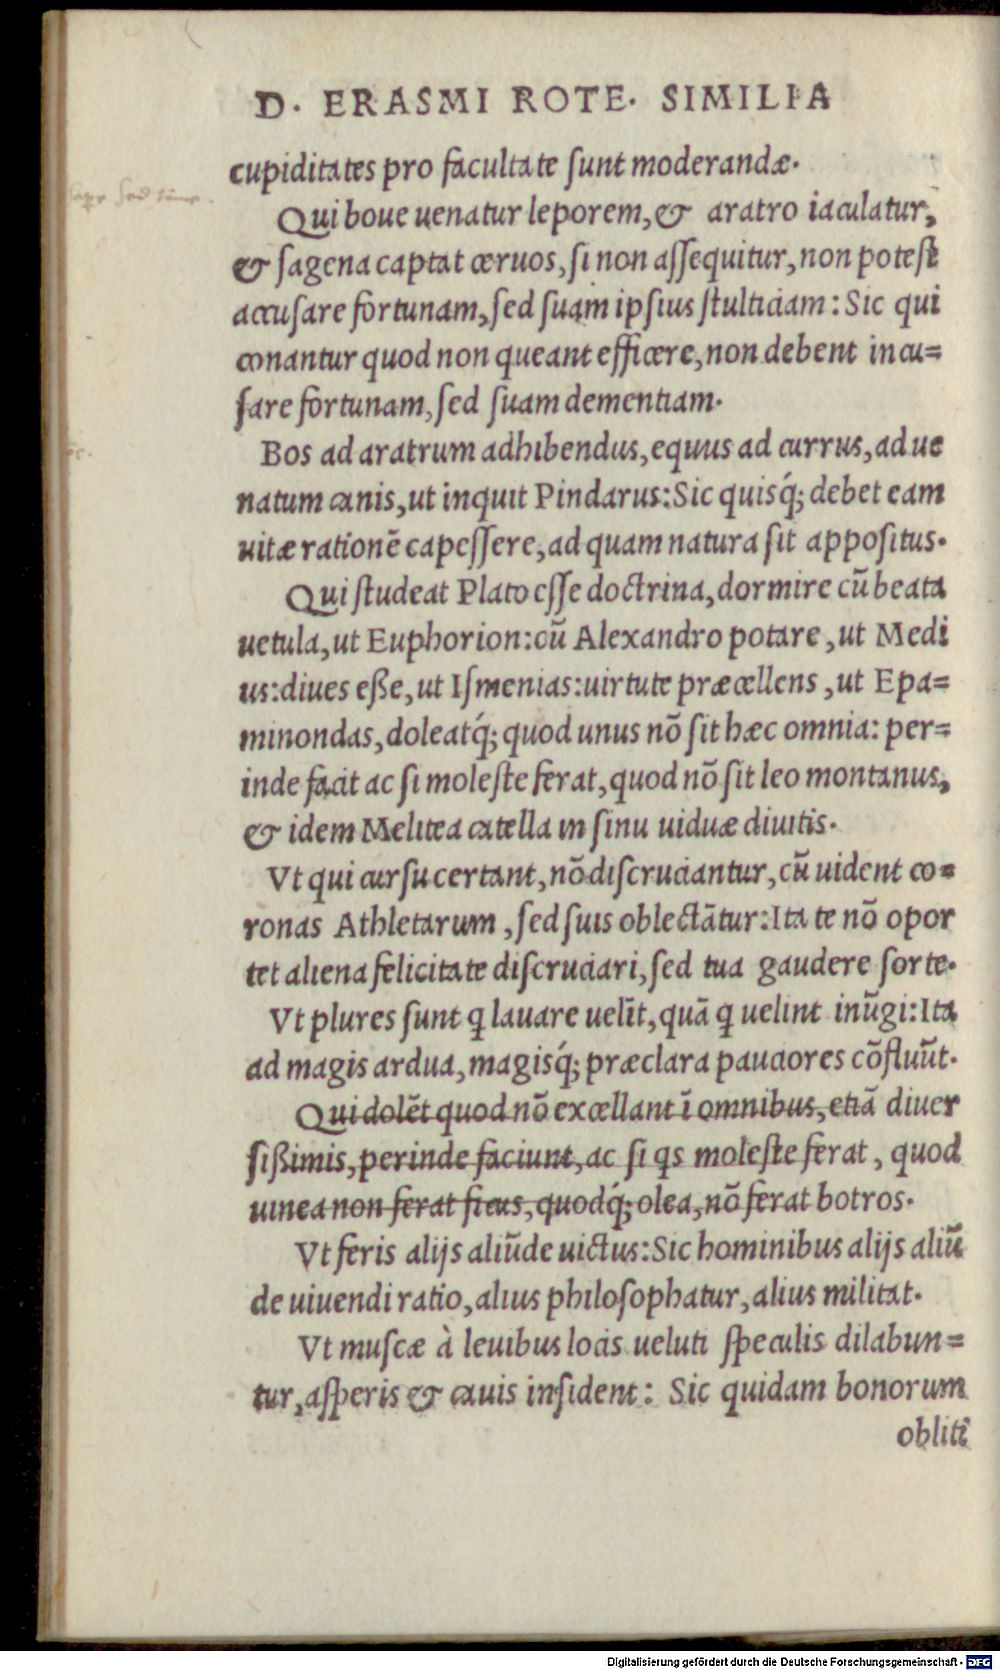 D. ERASMI ROTE. SIMILIA
cupiditates pro facultate ſunt moderandæ.
Qui boue uenatur leporem, & aratro iaculatur,
& ſagena captat ceruos, ſi non aſſequitur, non poteſt
accuſare fortunam, ſed ſuam ipſius ſtulticiam: Sic qui
conantur quod non queant efficere, non debent incu=
ſare fortunam, ſed ſuam dementiam.
Bos ad aratrum adhibendus, equus ad currus, ad ue
natum canis, ut inquit Pindarus: Sic quisq́; debet eam
uitæ rationẽ capeſſere, ad quam natura ſit appoſitus.
Qui ſtudeat Plato eſſe doctrina, dormire cũ beata
uetula, ut Euphorion: cũ Alexandro potare, ut Medi
us: diues eße, ut Iſmenias: uirtute præcellens, ut Epa=
minondas, doleatq́; quod unus nõ ſit hæc omnia: per=
inde facit ac ſi moleſte ferat, quod nõ ſit leo montanus,
& idem Melitea catella in ſinu uiduæ diuitis.
Vt qui curſu certant, nõ diſcruciantur, cũ uident co=
ronas Athletarum, ſed ſuis oblectãtur: Ita te nõ opor
tet aliena felicitate diſcruciari, ſed tua gaudere ſorte.
Vt plures ſunt q lauare uelĩt, quã q uelint inũgi: Ita
ad magis ardua, magisq́; præclara pauciores cõfluũt.
Qui dolẽt quod nõ excellant ĩ omnibus, etiã diuer
ſißimis, perinde faciunt, ac ſi qs moleſte ferat, quod
uinea non ferat ficus, quodq́; olea, nõ ferat botros.
Vt feris alijs aliũde uictus: Sic hominibus alijs aliũ
de uiuendi ratio, alius philoſophatur, alius militat.
Vt muſcæ à leuibus locis ueluti ſpeculis dilabun=
tur, aſperis & cauis inſident: Sic quidam bonorum
obliti
Digitalisierung gefördert durch die Deutsche Forschungsgemeinschaft - DFG